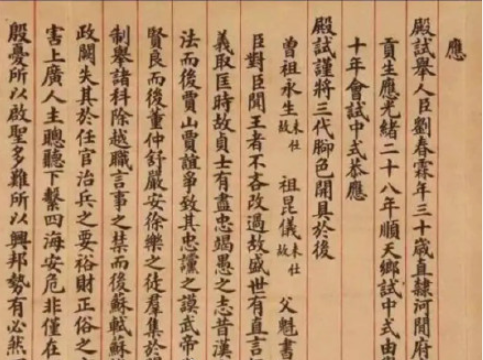 應
殿試舉人臣劉春霖年三十歲直隸河間府
貢生應光緒二十八年順天鄉試中式由
十年會試中式恭應
殿試謹將三代腳色開具於後
曾祖永生未仕故 祖昆儀未仕故 父魁書
臣對臣聞王者不吝改過故盛世有直言
義取匡時故貞士有盡忠竭愚之志昔漢
法而後賈山賈誼爭致其忠讜之謨武帝
賢良而後董仲舒嚴安徐樂之徒羣集於
制舉諸科除越職言事之禁而後蘇軾蘇
政闕失其於任官治兵之要裕財正俗之
害上廣人主聰聽下繫四海安危非僅在
殷憂所以啟聖多難所以興邦勢有必然